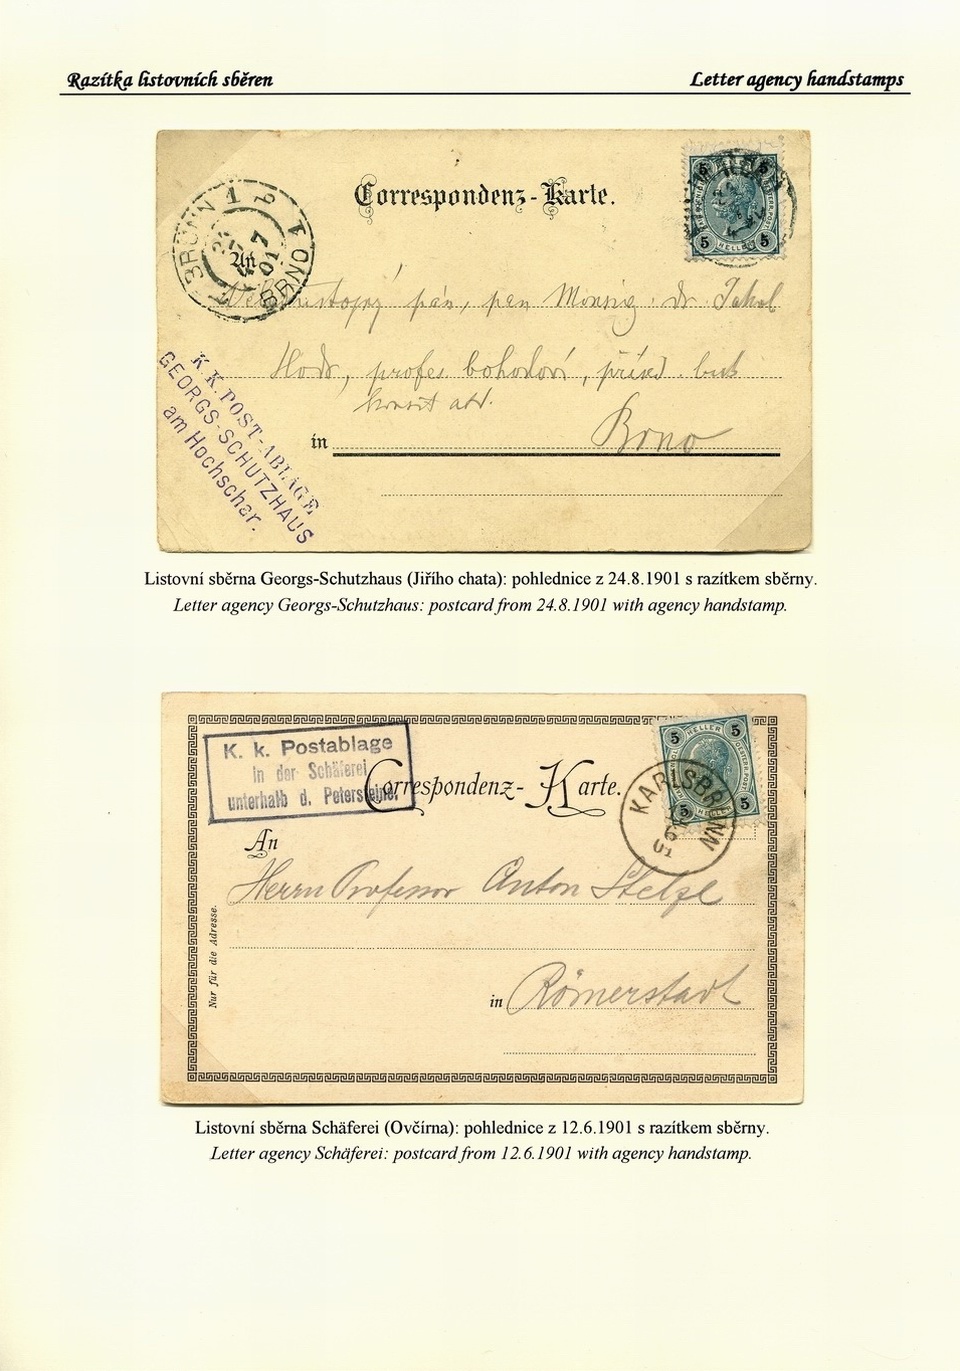 Razítka listovních sběren
Letter agency handstamps
Correspondenz-Karte.
BRÜNN 1 b
An
BRNO 1
5 5
HELLER
pán, pan
K. K. POST-ABLAGE
GEORGS-SCHUTZHAUS
am Hochschar.
in Brno
Listovní sběrna Georgs-Schutzhaus (Jiřího chata): pohlednice z 24.8.1901 s razítkem sběrny.
Letter agency Georgs-Schutzhaus: postcard from 24.8.1901 with agency handstamp.
K. k. Postablage
in der Schäferei
unterhalb d. Petersteine.
Correspondenz-Karte.
HELLER
5 5
5 5
HELLER
KARLSBRUNN
An
Herrn Professor Anton Stelzl
Nur für die Adresse.
in Römerstadt
Listovní sběrna Schäferei (Ovčírna): pohlednice z 12.6.1901 s razítkem sběrny.
Letter agency Schäferei: postcard from 12.6.1901 with agency handstamp.